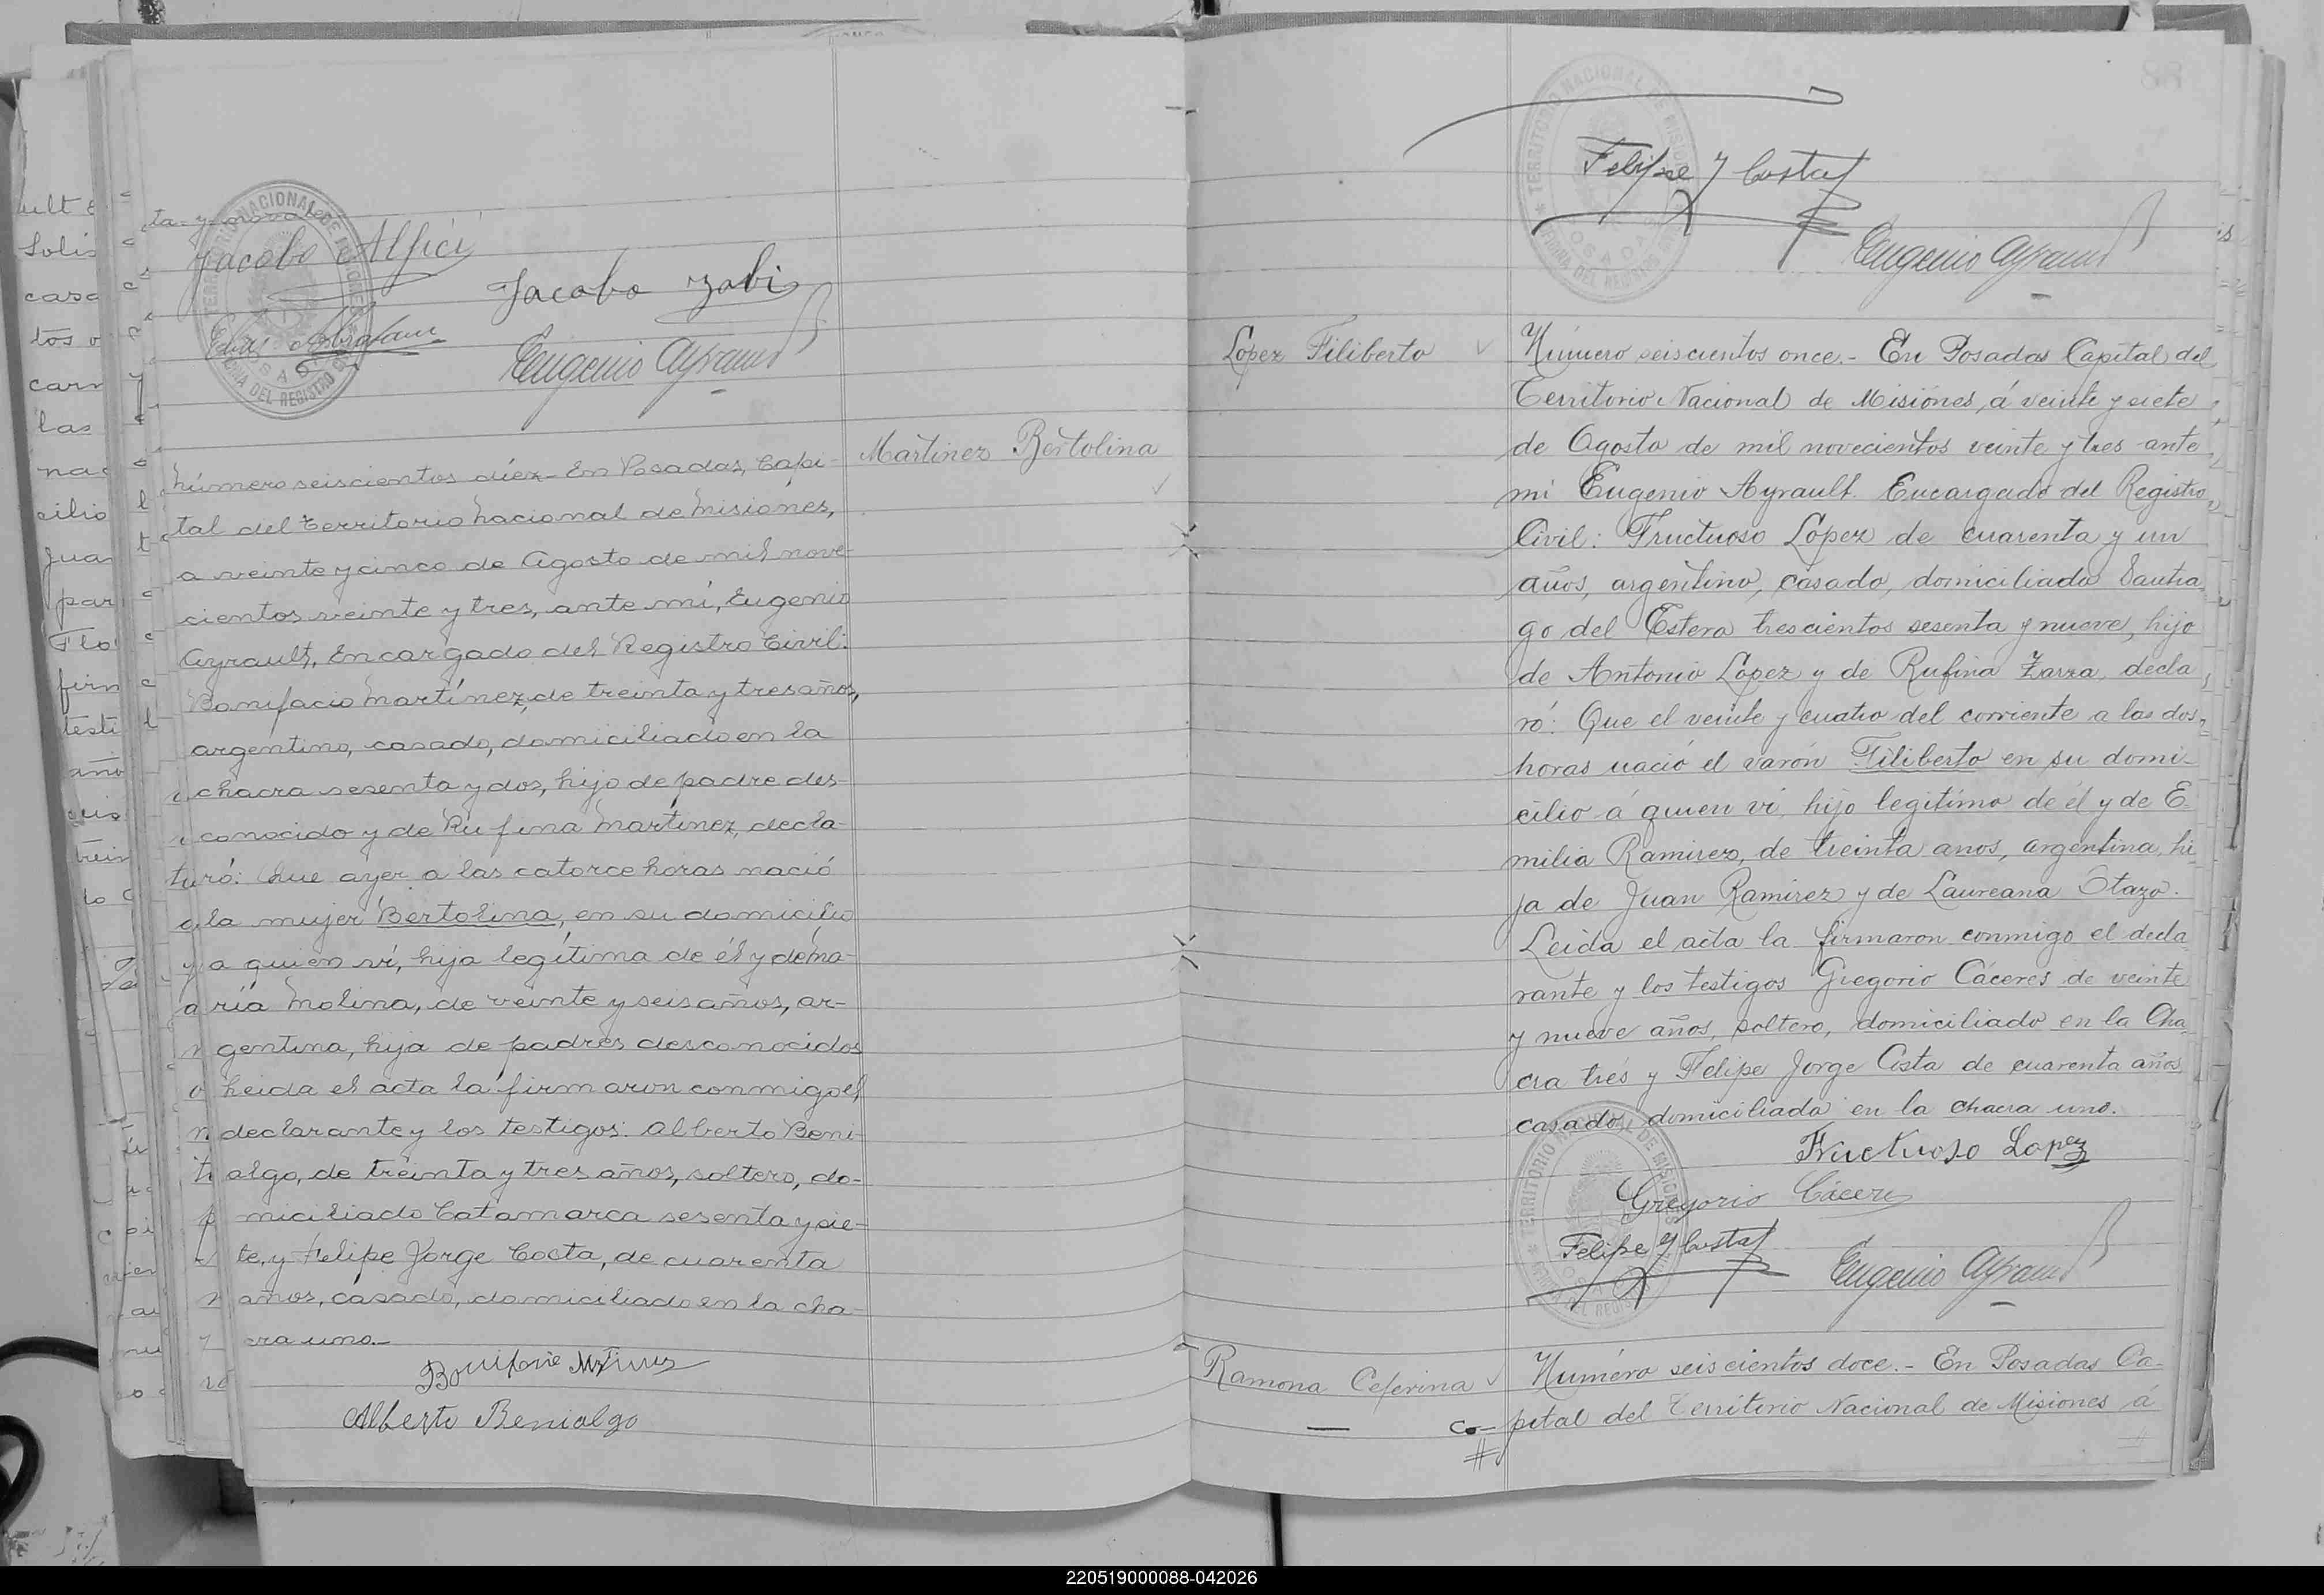 ta y nove
Jacobo Alfici
Jacobo Zabi
Elias Abraham
Eugenio Ayrault
Martinez Bertolina
Número seiscientos diez - En Posadas, Capi-
tal del Territorio Nacional de Misiones,
a veinte y cinco de Agosto de mil nove-
cientos veinte y tres, ante mí, Eugenio
Ayrault, Encargado del Registro Civil:
Bonifacio Martínez, de treinta y tres años,
argentino, casado, domiciliado en la
chacra sesenta y dos, hijo de padre des-
conocido y de Rufina Martínez, decla-
ró: Que ayer a las catorce horas nació
la mujer Bertolina, en su domicilio
a quien ví, hija legítima de él y de Ma-
ría Molina, de veinte y seis años, ar-
gentina, hija de padres desconocidos
Leida el acta la firmaron conmigo el
declarante y los testigos: Alberto Beni-
algo, de treinta y tres años, soltero, do-
miciliado Catamarca sesenta y sie-
te, y Felipe Jorge Costa, de cuarenta
años, casado, domiciliado en la cha-
cra uno.-
Alberto Benialgo
88
Felipe J Costa
Eugenio Ayrault
López Filiberto
Número seiscientos once.- En Posadas Capital del
Territorio Nacional de Misiónes, á veinte y siete
de Agosto de mil novecientos veinte y tres ante
mi Eugenio Ayrault. Encargado del Registro
Civil: Fructuoso López de cuarenta y un
años, argentino, casado, domiciliado Santia
go del Estero trescientos sesenta y nueve, hijo
de Antonio López y de Rufina Zarza, decla
ró: Que el veinte y cuatro del corriente a las dos
horas nació el varón Filiberto en su domi-
cilio á quien vi, hijo legitimo de él y de E
milia Ramirez, de treinta anos, argentina, hi
ja de Juan Ramirez y de Laureana Otazo.
Leida el acta la firmaron conmigo el decla
rante y los testigos Gregorio Cáceres de veinte
y nueve años, soltero, domiciliado en la Cha
cra trés y Felipe Jorge Costa de cuarenta años
casado, domiciliado en la chacra uno.
Fructuoso Lopez
Gregorio Cáceres
Felipe J Costa
Eugenio Ayrault
Ramona Ceferina
Número seiscientos doce.- En Posadas Ca-
pital del Territorio Nacional de Misiones á
220519000088-042026